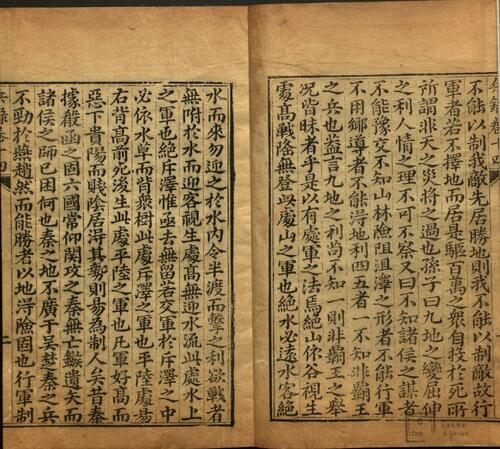 不能以制我敵先居勝地則我不能以制敵故行
軍者若不擇地而居是驅百萬之衆自投於死所
所謂非天之災將之過也孫子曰九地之變屈伸
之利人情之理不可不察又曰不知諸侯之謀者
不能豫交不知山林險阻沮澤之形者不能行軍
不用鄉導者不能淂地利四五者一不知非霸王
之兵也葢言九地之利茍不知一則非霸王之舉
况皆昧者乎是以有處軍之法焉絕山依谷視生
處髙戰隆無登此處山之軍也絕水必逺水客絕
水而來勿迎之扵水内令半渡而擊之利欲戰者
無附於水而迎客視生處髙無迎水流此處水上
之軍也絕斥澤惟亟去無留若交軍於斥澤之中
必依水草而背衆樹此處斥澤之軍也平陸處易
右背髙前死後生此處平陸之軍也凡軍好髙而
惡下貴陽而賤陰居淂其勢則易為制人矣昔秦
據殽函之固六國常仰關攻之秦無亡鏃遺矢而
諸侯之師已困何也秦之地不廣于吳楚秦之兵
不勁於燕趙然而能勝者以地淂險固也行軍制
二